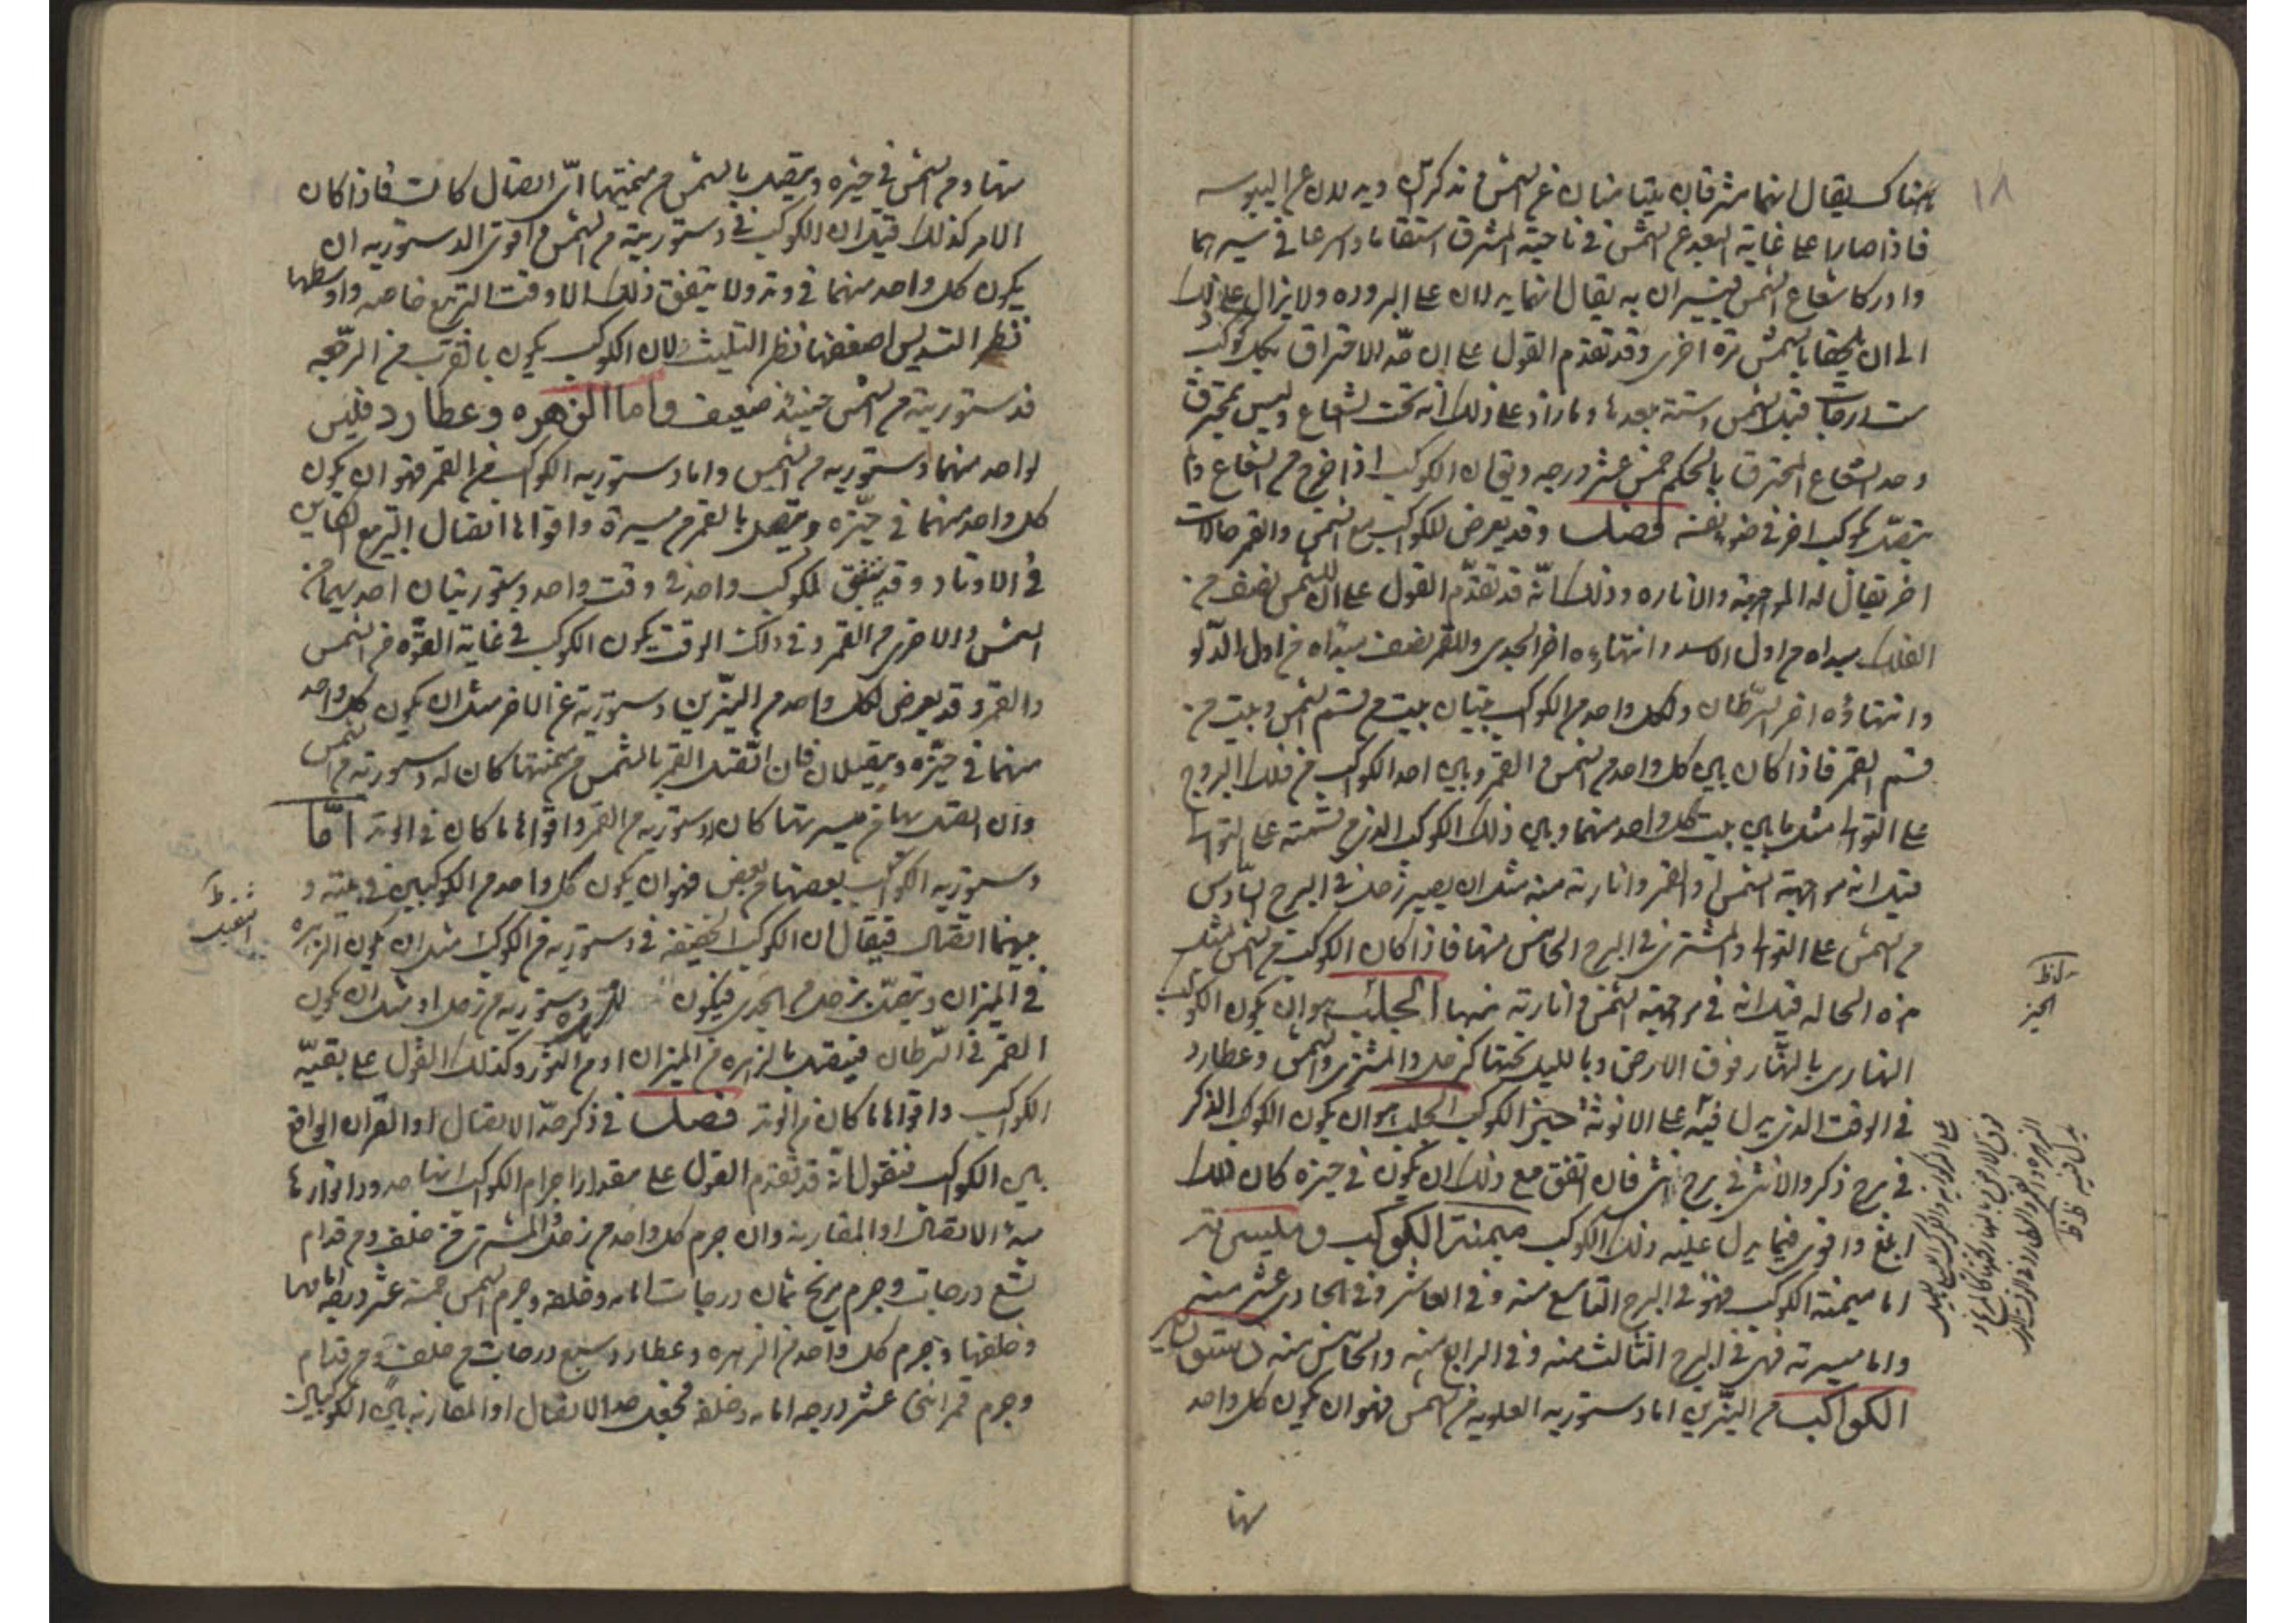 ١٨
هناك يقال انهما مشرقان يتيامنان عن الشمس تذكرتك ويدلان على اليبوسه
فاذا صارا على غاية البعد عن الشمس في ناحية المشرق استقاما واسرعا في سيرهما
وادركا شعاع الشمس فيستتران به يقال انهما يدلان على البروده ولا يزال على ذلك
الى ان يلحقا بالشمس تره اخرى وقد تقدم القول على ان حد الاحتراق بكل كوكب
ست درجات قبل الشمس وستة بعدها وما زاد على ذلك انه تحت الشعاع وليس بمحترق
وحد الشعاع المحترق بالحكم خمس عشر درجه ويقال ان الكوكب اذا خرج من الشعاع ولم
يتصل بكوكب اخر في ضوء نفسه فصل وقد يعرض للكواكب مع الشمس والقمر حالات
اخر يقال له المواجهة والاناره وذلك انه قد تقدم القول على ان للشمس نصف من
الفلك مبداه من اول الاسد وانتهاءه اخر الجدى وللقمر نصف مبداه من اول الدلو
وانتهاؤه اخر السرطان ولكل واحد من الكواكب بيتان بيت من قسم الشمس وبيت من
قسم القمر فاذا كان بين كل واحد من الشمس والقمر وبين احد الكواكب من فلك البروج
على التوالى مثل ما بين بيت كل واحد منهما وبين ذلك الكوكب الذى من قسمته على التوالى
قيل انه مواجهة الشمس والقمر وانارته منه مثل ان يصير زحل في البرج السادس
من الشمس على التوالى والمشترى في البرج الخامس منها فاذا كان الكوكب من الشمس مثل
هذه الحاله قيل انه في مواجهة الشمس وانارته منها الحلب هو ان يكون الكوكب
النهارى بالنهار فوق الارض وبالليل تحتها كزحل والمشترى والشمس وعطارد
في الوقت الذى يدل فيه على الانوثة حيز الكوكب الحلب هو ان يكون الكوكب الذكر
في برج ذكر والانثى في برج انثى فان اتفق مع ذلك ان يكون في حيزه كان ذلك
ابلغ واقوى فيما يدل عليه ذلك الكوكب ميمنة الكوكب وميسرته
اما ميمنة الكوكب فهو في البرج التاسع منه وفي العاشر وفي الحادى عشر منه
واما ميسرته فهى في البرج الثالث منه وفي الرابع منه والخامس منه دستورية
الكواكب من النيرين اما دستوريه العلويه من الشمس فهو ان يكون كل واحد
منها
ظ
الحيز
منها ومن الشمس في حيزه ويتصل بالشمس من ميمنتها اى اتصال كانت فاذا كان
الامر كذلك قيل ان الكوكب في دستورية من الشمس واقوى الدستوريه ان
يكون كل واحد منهما في وتد ولا يتفق ذلك الا وقت التربيع خاصه واوسطها
نظر التسديس اضعفها نظر التثليث لان الكوكب يكون بالقرب من الرجعه
فدستوريته من الشمس حينئذ ضعيف واما الزهره وعطارد فليس
لواحد منهما دستوريه من الشمس واما دستوريه الكواكب من القمر فهو ان يكون
كل واحد منهما في حيزه ويتصل بالقمر من ميسرة واقواها اتصال التربيع الكاين
في الاوتاد وقد يتفق لكوكب واحد في وقت واحد دستوريتان احديهما من
الشمس والاخرى من القمر وفي ذلك الوقت يكون الكوكب في غاية القوه من الشمس
والقمر وقد يعرض لكل واحد من النيرين دستورية عن الاخر مثل ان يكون كل واحد
منهما في حيزه ويتصلان فان اتصل القمر بالشمس من ميمنتها كان له دستوريه من الشمس
وان اتصل بها من ميسرتها كان لها دستوريه من القمر واقواها ما كان في الوتد اما
دستوريه الكواكب بعضها من بعض فهو ان يكون كل واحد من الكوكبين في بيته و
بينهما اتصال فيقال ان الكوكب الخفيفه في دستوريه من الكوكب مثل ان يكون الزهره
في الميزان ويتصل بزحل من الجدى فيكون للزهره دستوريه من زحل او مثل ان يكون
القمر في السرطان فيتصل بالزهره من الميزان او من الثور وكذلك القول على بقية
الكواكب واقواها ما كان في الوتد فصل في ذكر حد الاتصال او القران الواقع
بين الكواكب فنقول انه قد تقدم القول على مقدار اجرام الكواكب انها حدود انوارها
من الاتصال او المقارنه وان جرم كل واحد من زحل والمشترى من خلف ومن قدام
تسع درجات وجرم مريخ ثمان درجات امامه وخلفه وجرم الشمس خمسة عشر درجه امامها
وخلفها وجرم كل واحد من الزهره وعطارد سبع درجات من خلف ومن قدام
وجرم قمر اثنى عشر درجه امامه وخلفه فنجعل حد الاتصال او المقارنه بين الكوكبين